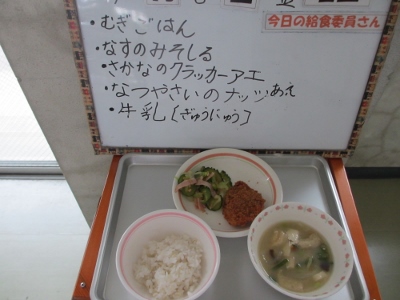 今日の給食委員さん
・むぎごはん
・なすのみそしる
・さかなのクラッカーアエ
・なつやさいのナッツあえ
・牛乳〔ぎゅうにゅう〕